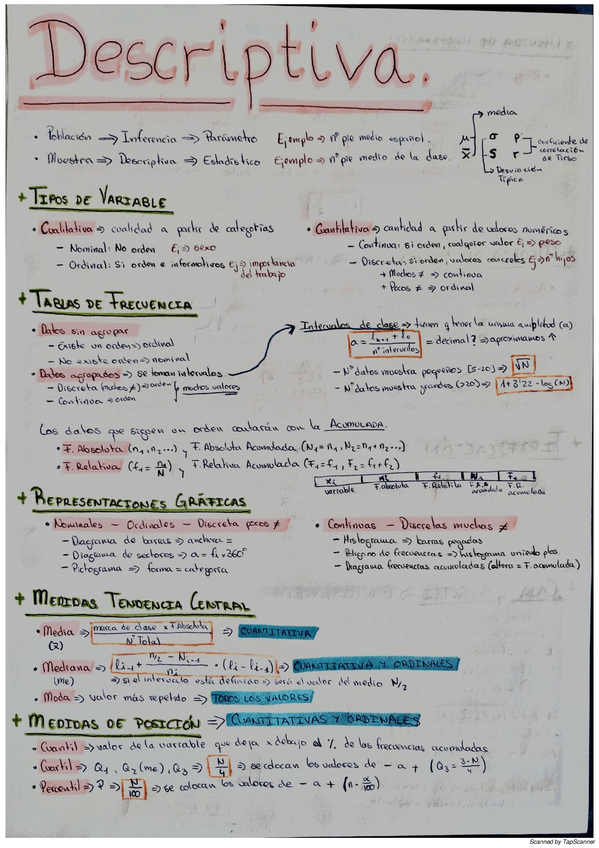 Descriptiva.
• Población ⇒ Inferencia ⇒ Parámetro Ejemplo ⇒ nº pie medio español.
• Muestra ⇒ Descriptiva ⇒ Estadístico Ejemplo ⇒ nº pie medio de la clase.
media
μ σ ρ
x̄ S r
coeficiente de correlación
Desviación Típica
+ TIPOS DE VARIABLE
• Cualitativa ⇒ cualidad a partir de categorías
– Nominal: No orden Ej ⇒ sexo
– Ordinal: Si orden e informativos Ej ⇒ importancia del trabajo
• Cuantitativa ⇒ cantidad a partir de valores numéricos
– Continua: si orden, cualquier valor Ej ⇒ peso
– Discreta: si orden, valores concretos Ej ⇒ nº hijos
+ Muchos ≠ ⇒ continua
+ Pocos ≠ ⇒ ordinal
+ TABLAS DE FRECUENCIA
• Datos sin agrupar
– Existe un orden ⇒ ordinal
– No existe orden ⇒ nominal
• Datos agrupados ⇒ se toman intervalos
– Discreta (muchos ≠) ⇒ orden
– Continua ⇒ orden
muchos valores
Intervalos de clase ⇒ tienen q tener la misma amplitud (a)
nº intervalos = decimal? ⇒ aproximamos ↑
– Nº datos muestra pequeños [5-20] ⇒ √N
– Nº datos muestra grandes (>20) ⇒ 1+3'22·log(N)
Los datos que siguen un orden contarán con la ACUMULADA.
• F. Absoluta (n₁, n₂...) y F. Absoluta Acumulada (N₁=n₁, N₂=n₁+n₂...)
• F. Relativa (f₁ = n₁/N) y F. Relativa Acumulada (F₁=f₁, F₂=f₁+f₂)
xi ni fi Ni Fi
variable F. absoluta F. Relativa F.A. acumulada F.R. acumulada
+ REPRESENTACIONES GRÁFICAS
• Nominales – Ordinales – Discreta pocos ≠
– Diagrama de barras ⇒ anchura =
– Diagrama de sectores ⇒ a = fi x 360º
– Pictograma ⇒ forma = categoría
• Continuas – Discretas muchas ≠
– Histograma ⇒ barras pegadas
– Polígono de frecuencias ⇒ histograma uniendo ptos
– Diagrama frecuencias acumuladas (altura = F. acumulada)
+ MEDIDAS TENDENCIA CENTRAL
• Media ⇒ marca de clase x F Absoluta / Nº Total ⇒ CUANTITATIVA
(x̄)
• Mediana ⇒ li-1 + n/2 – Ni-1 / ni · (li – li-1) ⇒ CUANTITATIVA Y ORDINALES
(me) ⇒ si el intervalo está definido ⇒ será el valor del medio N/2
• Moda ⇒ valor más repetido ⇒ TODOS LOS VALORES
+ MEDIDAS DE POSICIÓN ⇒ CUANTITATIVAS Y ORDINALES
• Cuantil ⇒ valor de la variable que deja x debajo el % de las frecuencias acumuladas
• Cuartil ⇒ Q₁, Q₂ (me), Q₃ ⇒ N/4 ⇒ se colocan los valores de – a + (Q₃ = 3·N/4)
• Percentil ⇒ P ⇒ N/100 ⇒ se colocan los valores de – a +
Scanned by TapScanner